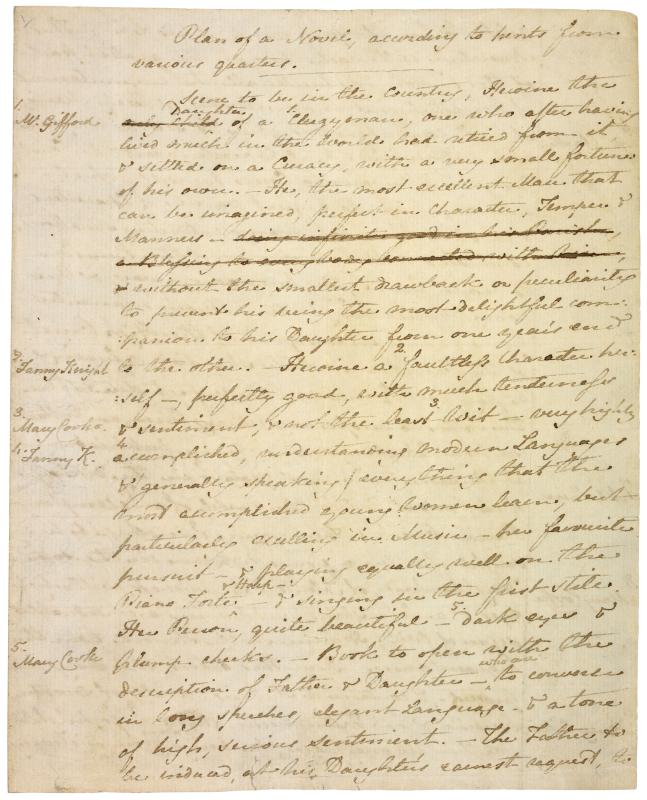 Plan of a Novel, according to hints from
various quarters.
Scene to be in the Country, Heroine the
Daughter
1. Mr. Gifford
only Child of a Clergyman, one who after having
lived much in the World had retired from it
& settled on a Curacy, with a very small fortune
of his own. — He, the most excellent Man that
can be imagined, perfect in Character, Temper &
Manners — doing infinite good in his Parish,
a Blessing to every body connected with him,
& without the smallest drawback or peculiarity
to prevent his being the most delightful com:
:panion to his Daughter from one year's end
2. Fanny Knight
to the other. — Heroine a 2 faultless Character her:
:self —, perfectly good, with much tenderness
3. Mary Cooke.
& sentiment, & not the least 3 Wit — very highly
4. Fanny K.
4 accomplished, understanding modern Languages
& (generally speaking) everything that the
most accomplished young Women learn, but
particularly excelling in Music — her favourite
pursuit — & playing equally well on the
& Harp —
Piano Forte — & singing in the first stile.
Her Person, quite beautiful — 5. dark eyes &
5. Mary Cooke
plump cheeks. — Book to open with the
who are
description of Father & Daughter — to converse
in long speeches, elegant Language — & a tone
of high, serious sentiment. — The Father to
be induced, at his Daughter's earnest request, to